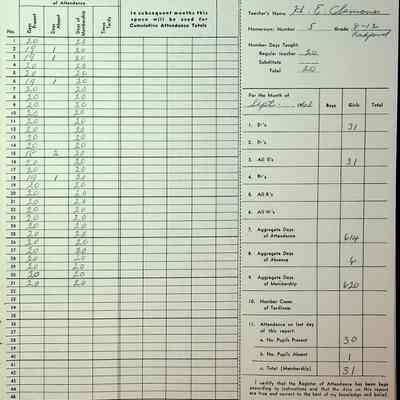 of Attendance
No. Days Present Days Absent Days of Membership Times Tardy
In subsequent months this
space will be used for
Cumulative Attendance Totals
1 20 20
2 19 1 20
3 19 1 20
4 20 20
5 20 20
6 19 1 20
7 20 20
8 20 20
9 20 20
10 20 20
11 20 20
12 20 20
13 20 20
14 20 20
15 18 2 20
16 20 20
17 20 20
18 19 1 20
19 20 20
20 20 20
21 20 20
22 20 20
23 20 20
24 20 20
25 20 20
26 20 20
27 20 20
28 20 20
29 20 20
30 20 20
31 20 20
32
33
34
35
36
37
38
39
40
41
42
43
44
45
46
Teacher's Name H. E. Clemons
Homeroom: Number 5 Grade 9-12
Number Days Taught
Regular teacher 20
Substitute
Total 20
For the Month of
Sept. Boys Girls Total
1. E's 31
2. D's
3. All E's 31
4. Rt's
5. All R's
6. All W's
7. Aggregate Days
of Attendance 614
8. Aggregate Days
of Absence 6
9. Aggregate Days
of Membership 620
10. Number Cases
of Tardiness
11. Attendance on last day
of this report:
a. No. Pupils Present 30
b. No. Pupils Absent 1
c. Total (Membership) 31
I certify that the Register of Attendance has been kept
according to instructions and that the data on this report
are true and correct to the best of my knowledge and belief.